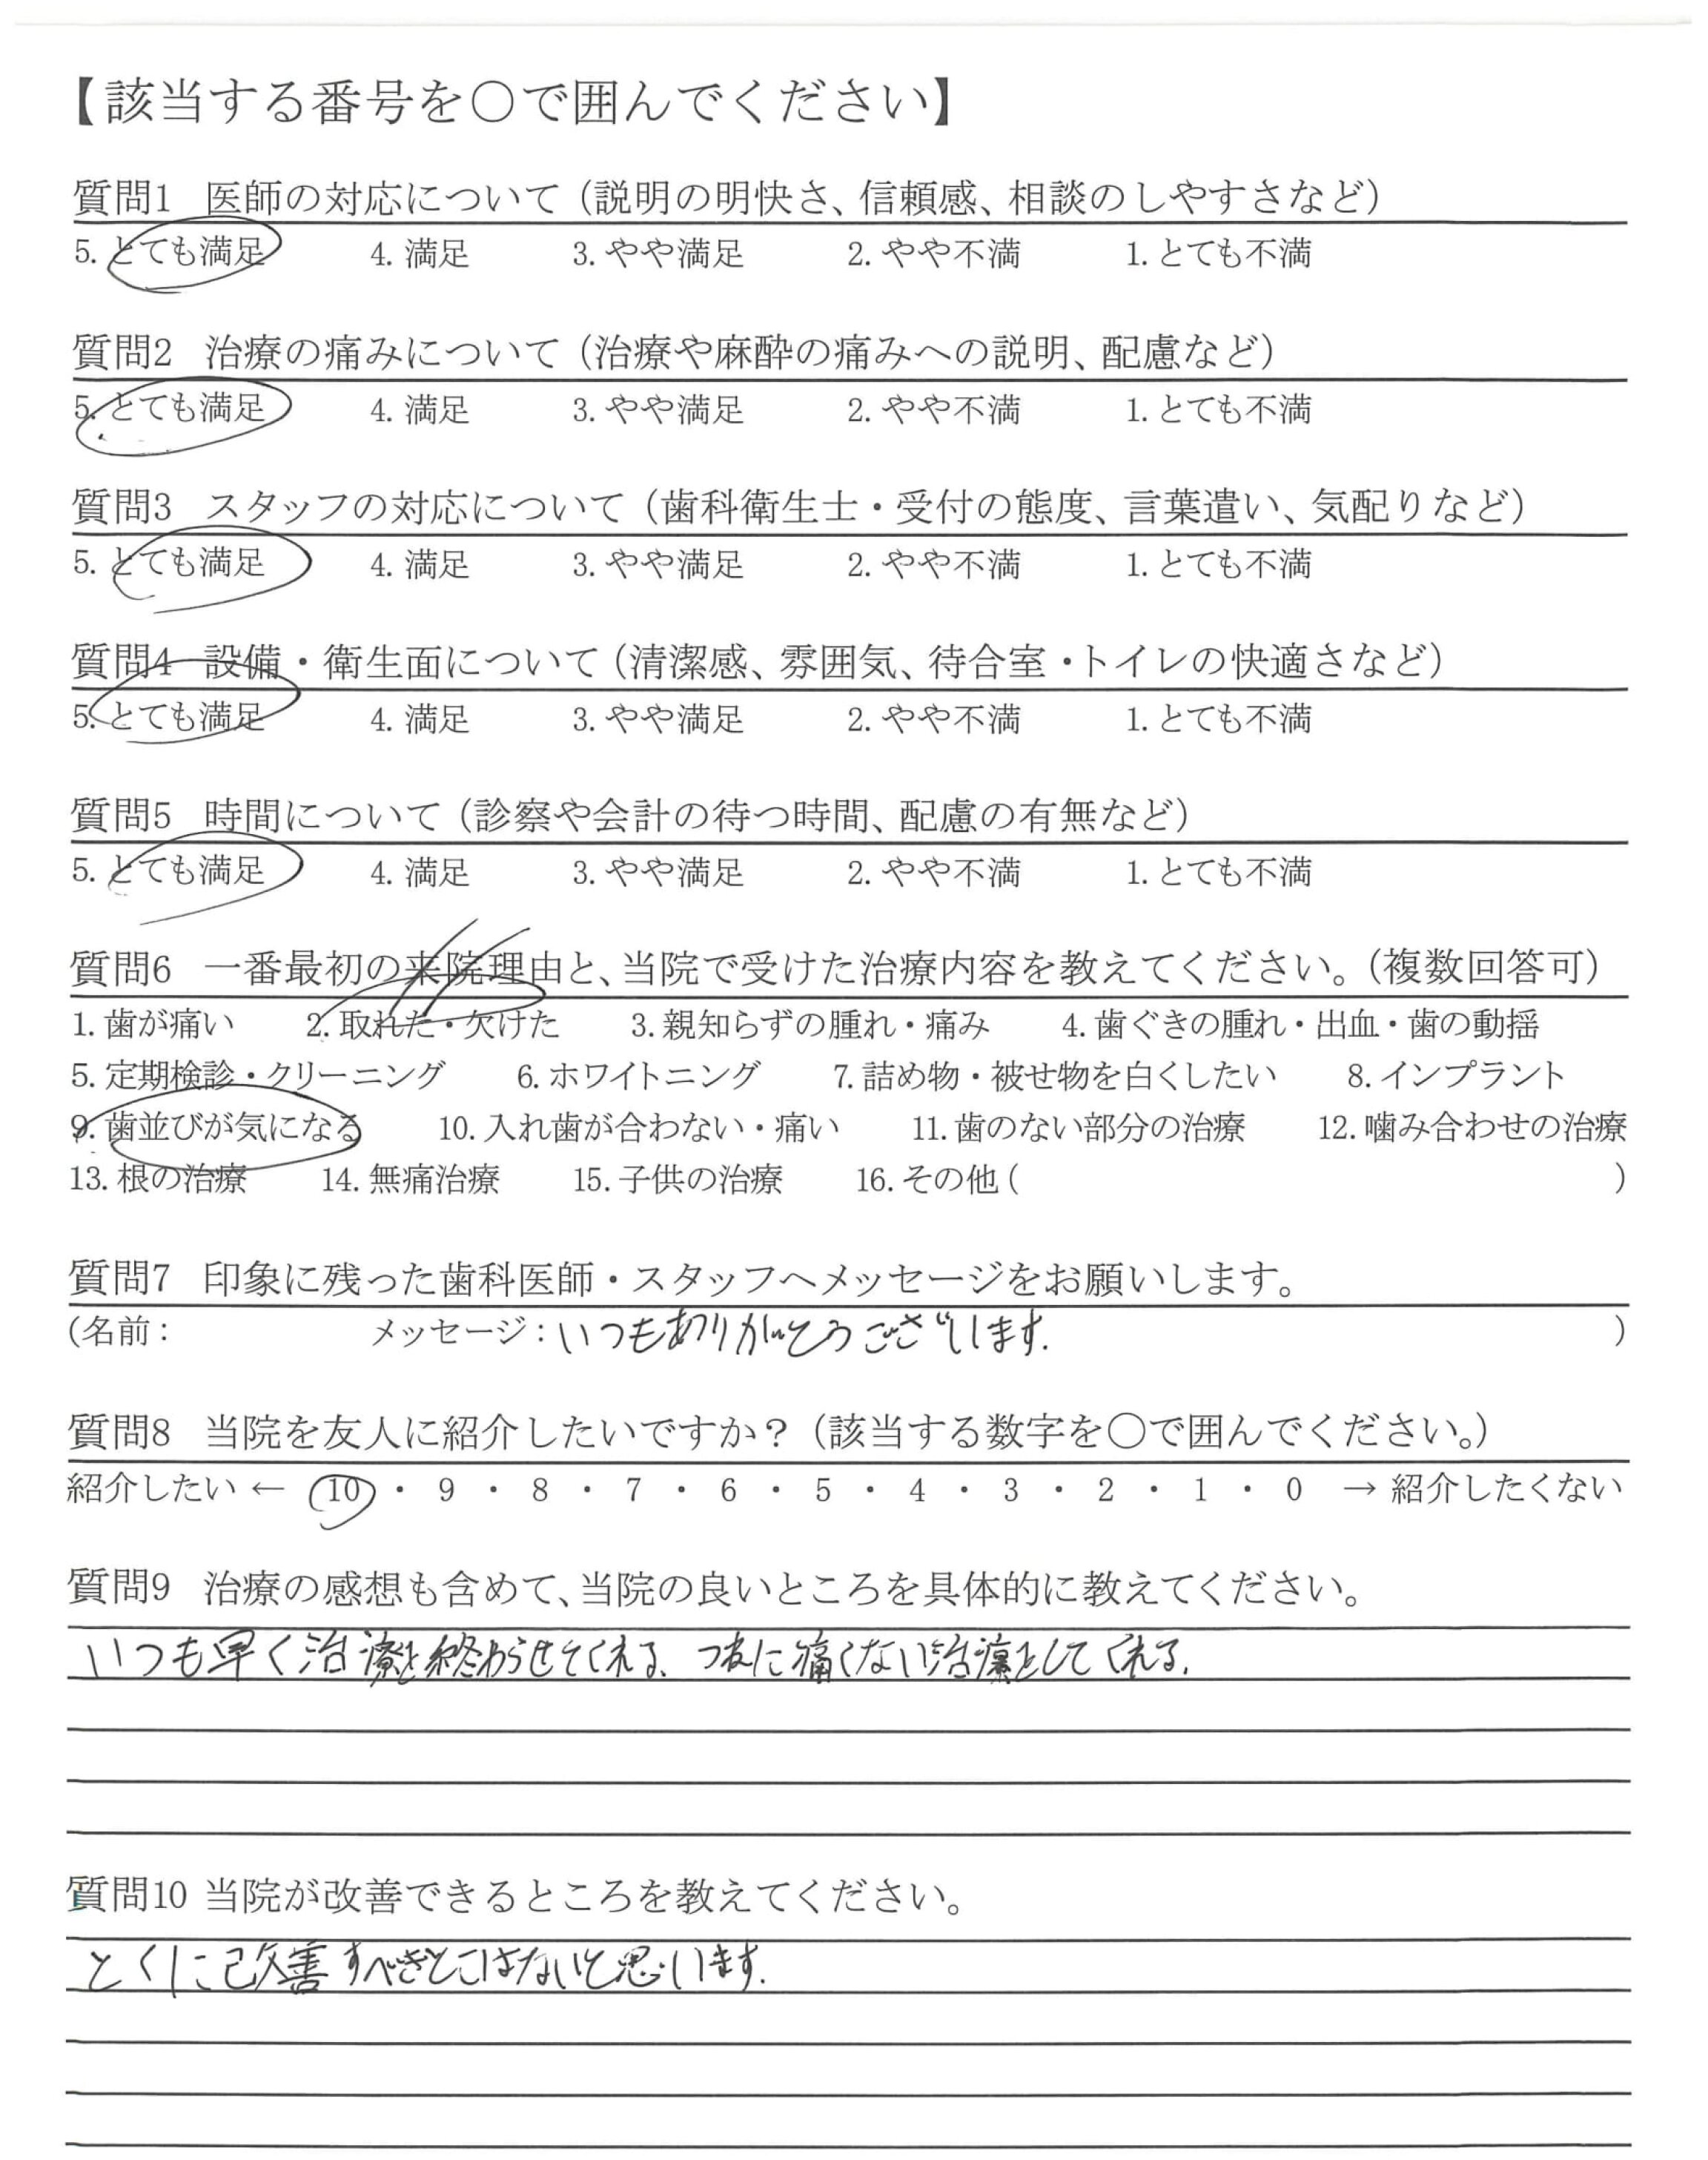 【該当する番号を〇で囲んでください】
質問1 医師の対応について（説明の明快さ、信頼感、相談のしやすさなど）
5. とても満足 4. 満足 3. やや満足 2. やや不満 1. とても不満
質問2 治療の痛みについて（治療や麻酔の痛みへの説明、配慮など）
5. とても満足 4. 満足 3. やや満足 2. やや不満 1. とても不満
質問3 スタッフの対応について（歯科衛生士・受付の態度、言葉遣い、気配りなど）
5. とても満足 4. 満足 3. やや満足 2. やや不満 1. とても不満
質問4 設備・衛生面について（清潔感、雰囲気、待合室・トイレの快適さなど）
5. とても満足 4. 満足 3. やや満足 2. やや不満 1. とても不満
質問5 時間について（診察や会計の待つ時間、配慮の有無など）
5. とても満足 4. 満足 3. やや満足 2. やや不満 1. とても不満
質問6 一番最初の来院理由と、当院で受けた治療内容を教えてください。（複数回答可）
1. 歯が痛い 2. 取れた・欠けた 3. 親知らずの腫れ・痛み 4. 歯ぐきの腫れ・出血・歯の動揺
5. 定期検診・クリーニング 6. ホワイトニング 7. 詰め物・被せ物を白くしたい 8. インプラント
9. 歯並びが気になる 10. 入れ歯が合わない・痛い 11. 歯のない部分の治療 12. 噛み合わせの治療
13. 根の治療 14. 無痛治療 15. 子供の治療 16. その他（ ）
質問7 印象に残った歯科医師・スタッフへメッセージをお願いします。
（名前： メッセージ：いつもありがとうございます. ）
質問8 当院を友人に紹介したいですか？（該当する数字を〇で囲んでください。）
紹介したい ← 10 ・ 9 ・ 8 ・ 7 ・ 6 ・ 5 ・ 4 ・ 3 ・ 2 ・ 1 ・ 0 → 紹介したくない
質問9 治療の感想も含めて、当院の良いところを具体的に教えてください。
いつも早く治療を終わらせてくれる、つねに痛くない治療をしてくれる.
質問10 当院が改善できるところを教えてください。
とくに改善すべきとこはないと思います.